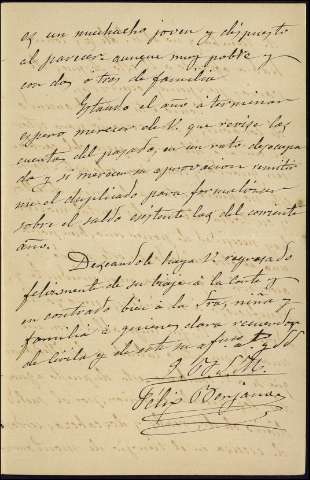 es un muchacho joven y dispuesto
al parecer aunque muy pobre y
con dos ó tres de familia
Estando el año á terminar
espero merecer de V. que revise las
cuentas del pasado, en un rato desocupa
do y si merecen su aprovacion remita
me el duplicado para formalizar
sobre el saldo existente las del corriente
año.
Deseandole haya V. regresado
felizmente de su biaje á la Corte y
encontrado bien á la Sra, niña y
familia á quienes dara recuerdos
de Cirila y de este su affmo S. S.
Q. B. S. M.
Felix